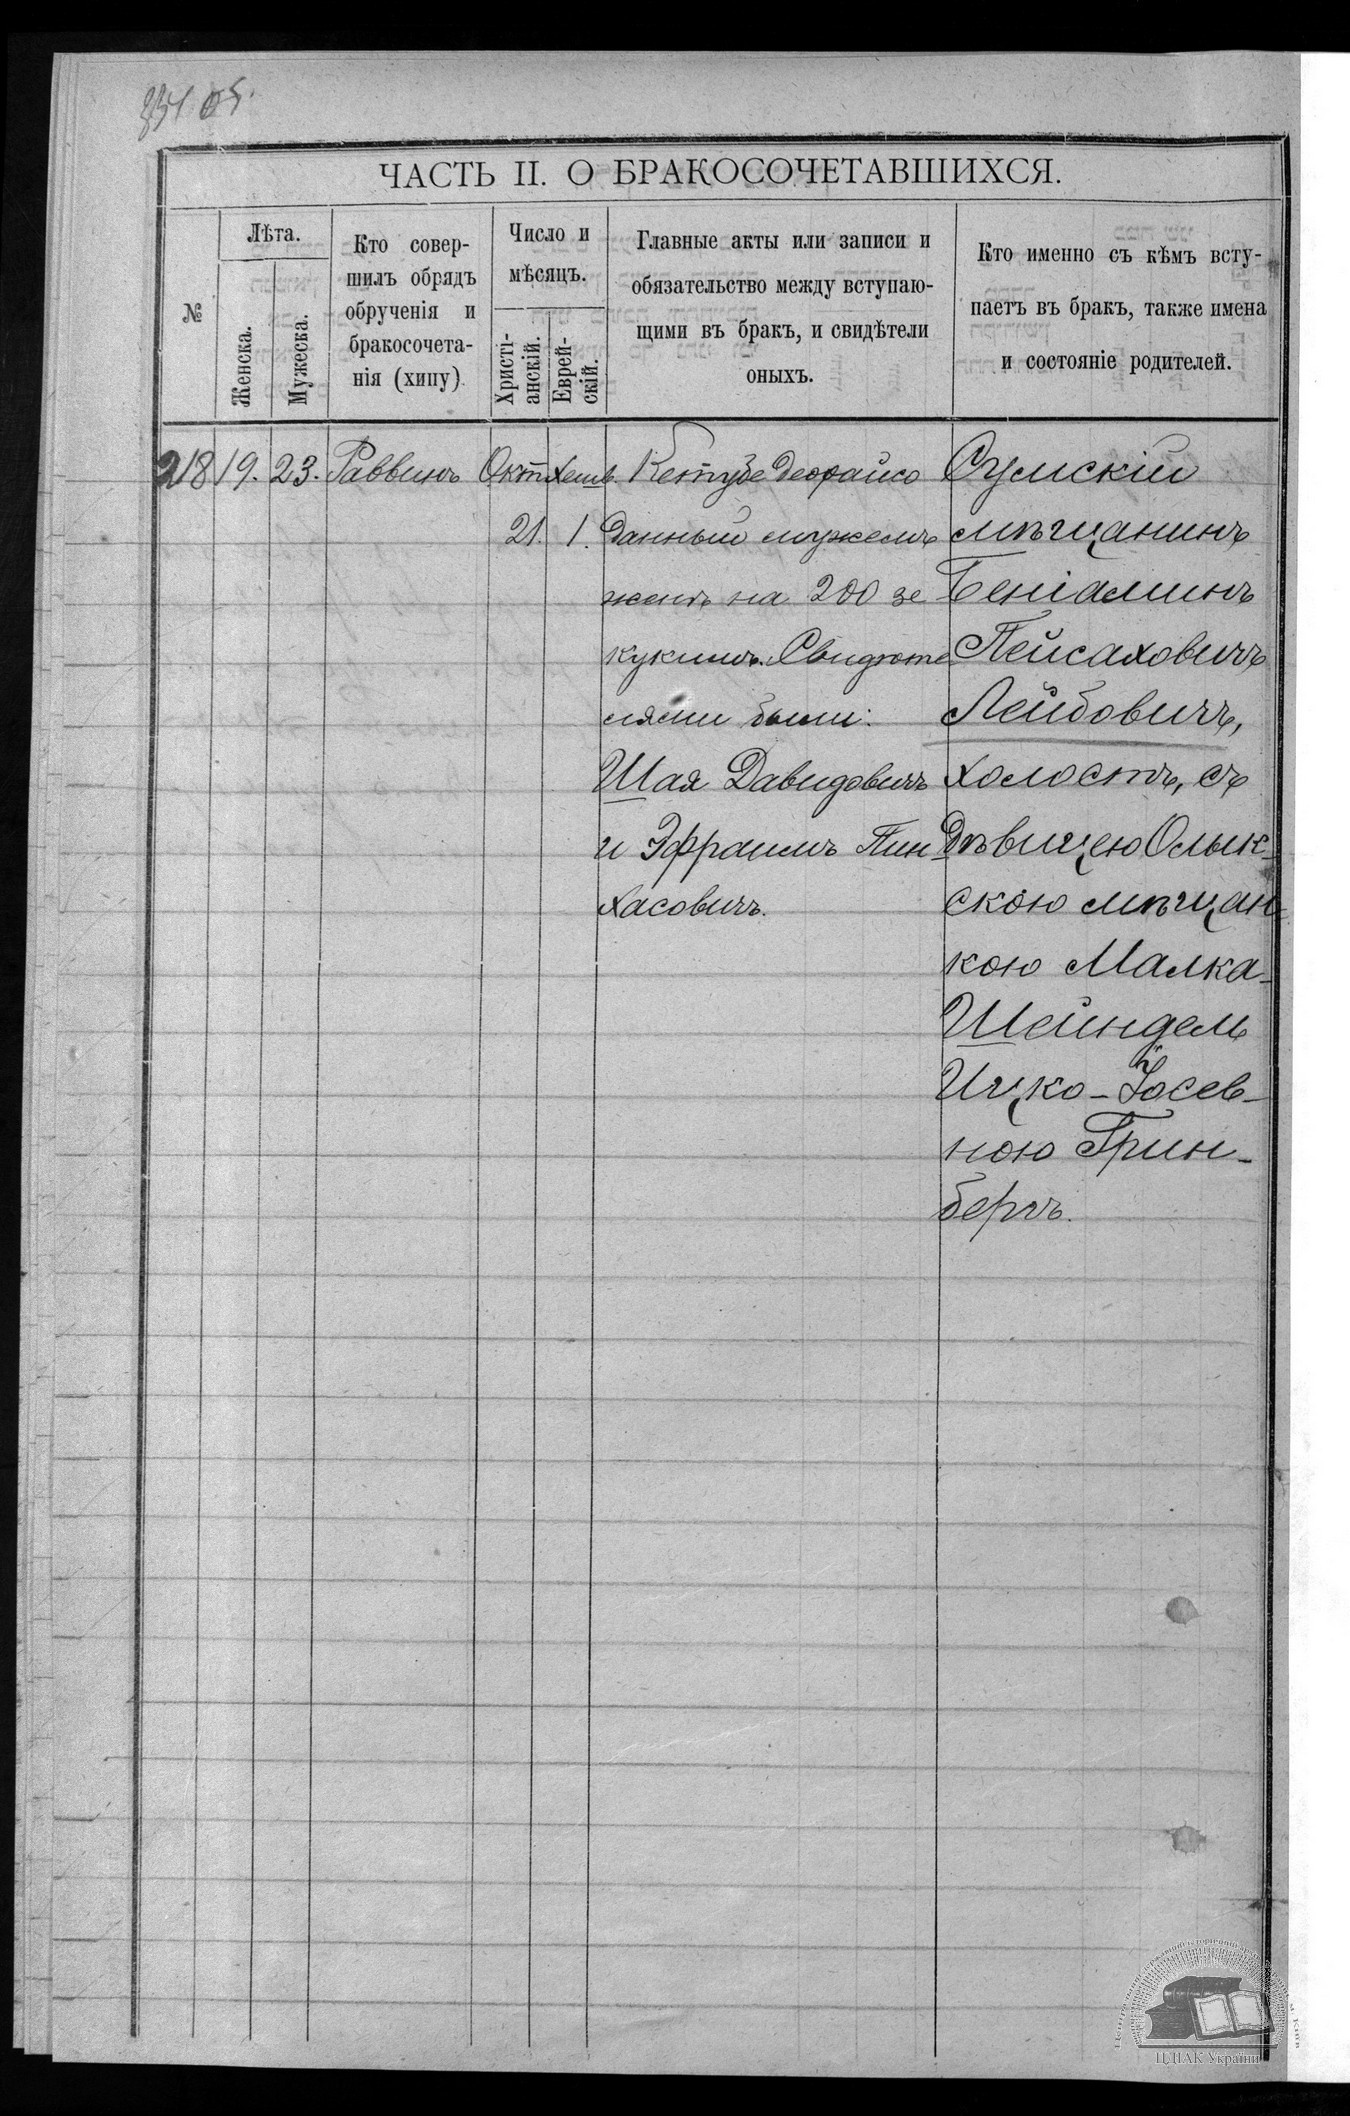 ЧАСТЬ II. О БРАКОСОЧЕТАВШИХСЯ.
№
Лѣта.
Женска.
Мужеска.
Кто совер-
шилъ обрядъ
обрученія и
бракосочета-
нія (хипу)
Число и
мѣсяцъ.
Христі-
анскій.
Еврей-
скій.
Главные акты или записи и
обязательство между вступаю-
щими въ бракъ, и свидѣтели
оныхъ.
Кто именно съ кѣмъ всту-
паетъ въ бракъ, также имена
и состояніе родителей.
218
19.
23.
Раввинъ
Окт.
21.
Хешв.
1.
Кетубе деорайсо
данный мужемъ
женѣ на 200 зе
кукимъ. Свидѣте
лями были:
Шая Давидовичъ
и Эфраимъ Пин
хасовичъ.
Сумскій
мѣщанинъ
Беніаминъ
Пейсаховичъ
Лейбовичъ,
холостъ, съ
дѣвицею Олык-
скою мѣщан-
кою Малка-
Шейндель
Ицко-Іосев-
ною Грин-
бергъ.
ЦДІАК України